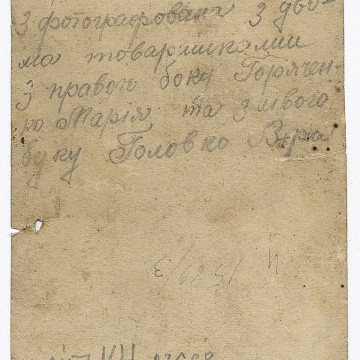 З фотографована з дво-
ма товаришками
З правого боку Горячен-
ко Марія та з лівого
боку Головко Віра